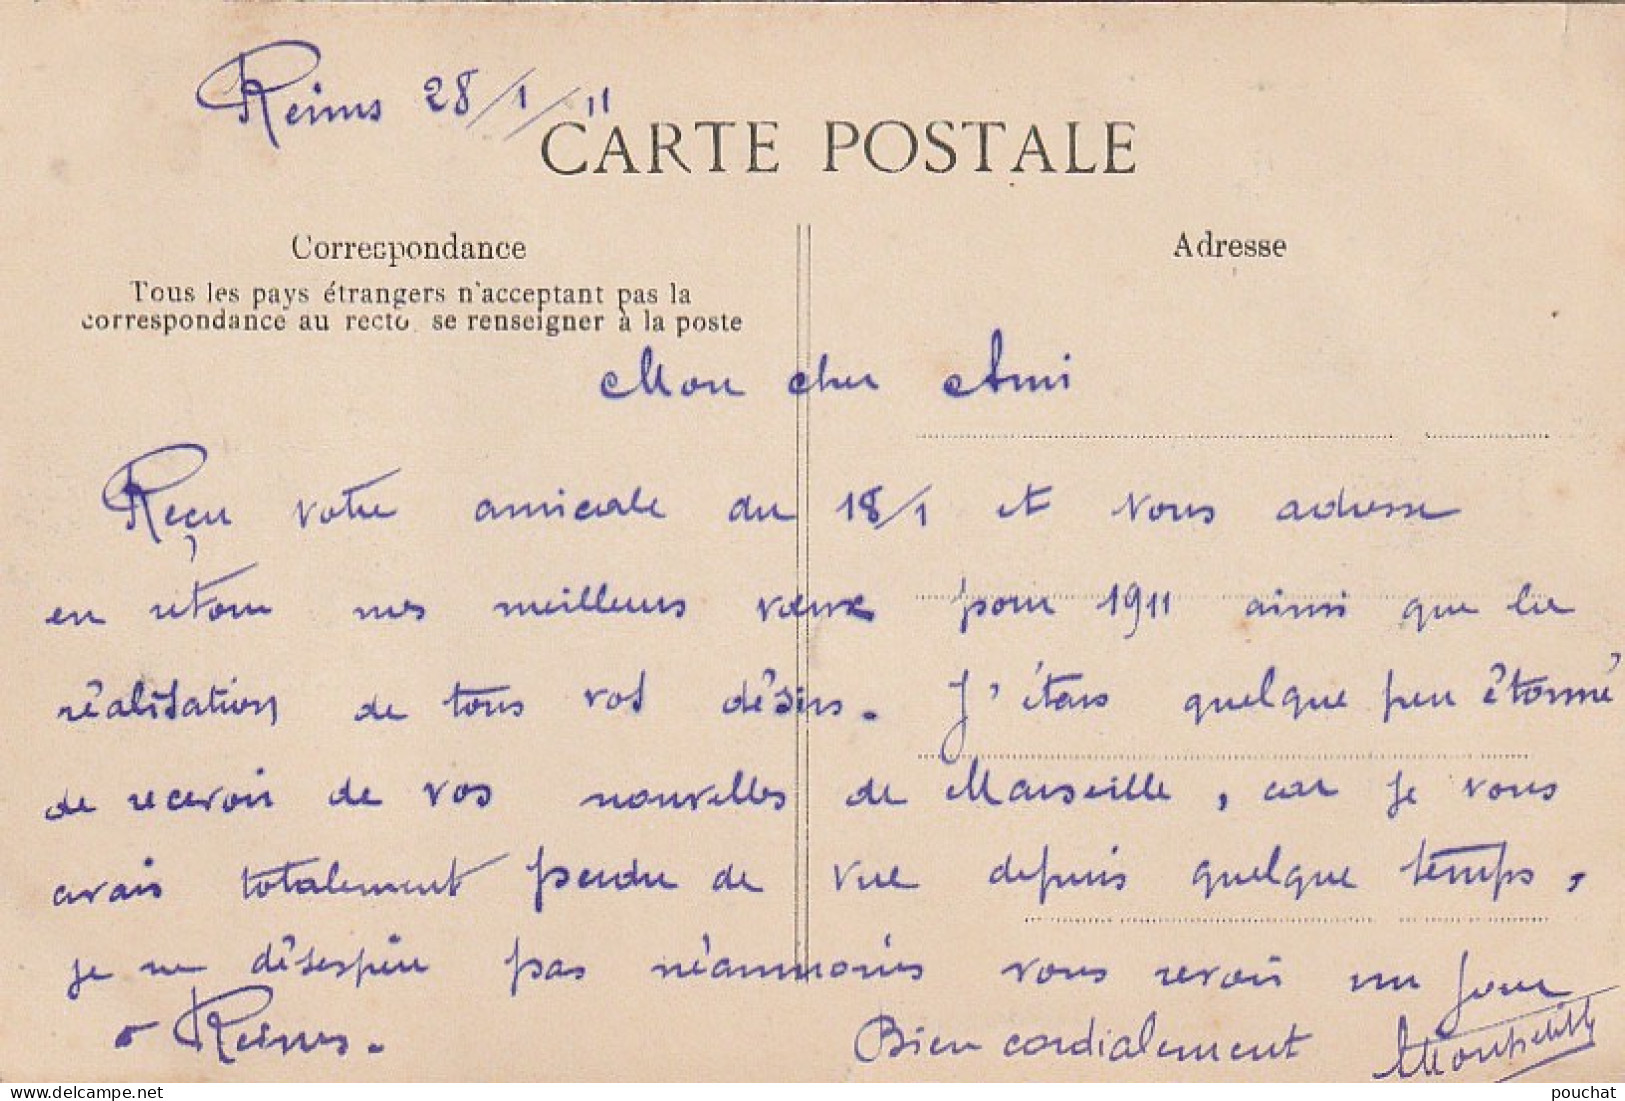 Reims 28/1/11
CARTE POSTALE
Correspondance
Adresse
Tous les pays étrangers n'acceptant pas la
correspondance au recto, se renseigner à la poste
Mon cher Ami
Reçu votre amicale du 18/1 et vous adresse
en retour mes meilleurs vœux pour 1911 ainsi que la
réalisation de tous vos désirs. J'étais quelque peu étonné
de recevoir de vos nouvelles de Marseille, car je vous
avais totalement perdu de vue depuis quelque temps,
je ne désespère pas néanmoins vous revoir un jour
à Reims.
Bien cordialement
delcampe.net
pouchat